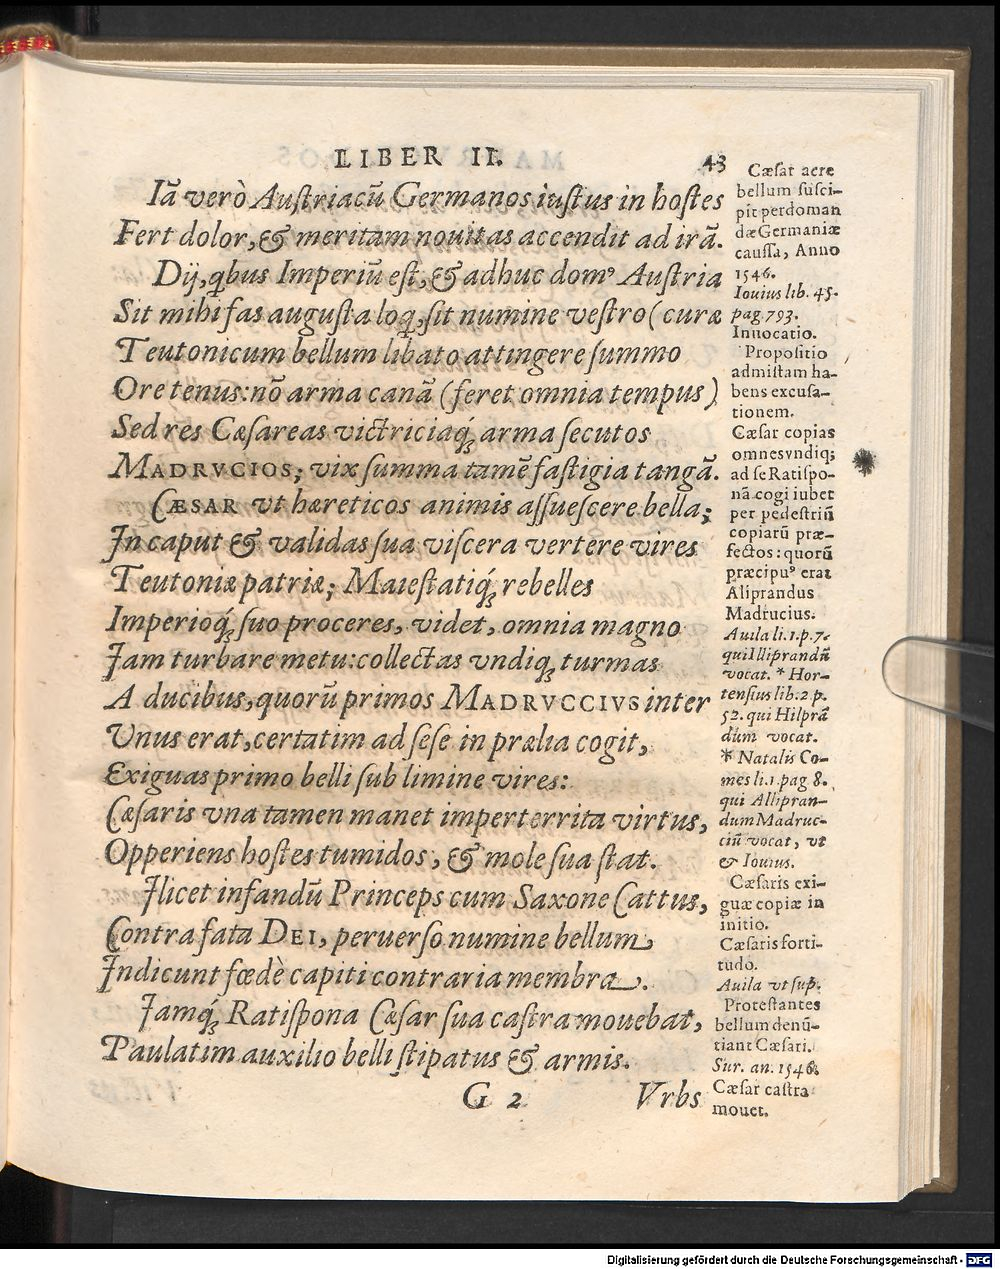 LIBER II. 43
Iã verò Austriacũ Germanos iustus in hostes
Fert dolor, & meritam nouitas accendit ad irã.
Dij, qbus Imperiũ est, & adhuc domꝰ Austria
Sit mihi fas augusta loq, sit numine vestro (curæ
Teutonicum bellum libato attingere summo
Ore tenus: nõ arma canã (feret omnia tempus)
Sed res Cæsareas victriciaq́; arma secutos
MADRVCIOS; vix summa tamẽ fastigia tangã.
CÆSAR vt hæreticos animis assuescere bella;
In caput & validas sua viscera vertere vires
Teutoniæ patriæ; Maiestatiq́; rebelles
Imperioq́; suo proceres, videt, omnia magno
Jam turbare metu: collectas vndiq; turmas
A ducibus, quorũ primos MADRVCCIVS inter
Vnus erat, certatim ad sese in prælia cogit,
Exiguas primo belli sub limine vires:
Cæsaris vna tamen manet imperterrita virtus,
Opperiens hostes tumidos, & mole sua stat.
Jlicet infandũ Princeps cum Saxone Cattus,
Contra fata DEI, peruerso numine bellum
Indicunt fœdè capiti contraria membra.
Jamq́; Ratispona Cæsar sua castra mouebat,
Paulatim auxilio belli stipatus & armis.
G 2 Vrbs
Cæsar acre
bellum susci-
pit perdoman
dæ Germaniæ
caussa, Anno
1546.
Iouius lib. 45.
pag. 793.
Inuocatio.
Propositio
admistam ha-
bens excusa-
tionem.
Cæsar copias
omnes vndiq;
ad se Ratispo-
nã cogi iubet
per pedestriũ
copiarũ præ-
fectos: quorũ
præcipuꝰ erat
Aliprandus
Madrucius.
Auila li. 1. p. 7.
qui Iliprandũ
vocat. * Hor-
tensius lib. 2 p.
52. qui Hilprã
dum vocat.
* Natalis Co-
mes li. 1. pag 8.
qui Allipran-
dum Madruc-
ciũ vocat, vt
& Iouius.
Cæsaris exi-
guæ copiæ in
initio.
Cæsaris forti-
tudo.
Auila vt sup.
Protestantes
bellum denũ-
tiant Cæsari.
Sur. an. 1546.
Cæsar castra
mouet.
Digitalisierung gefördert durch die Deutsche Forschungsgemeinschaft - DFG